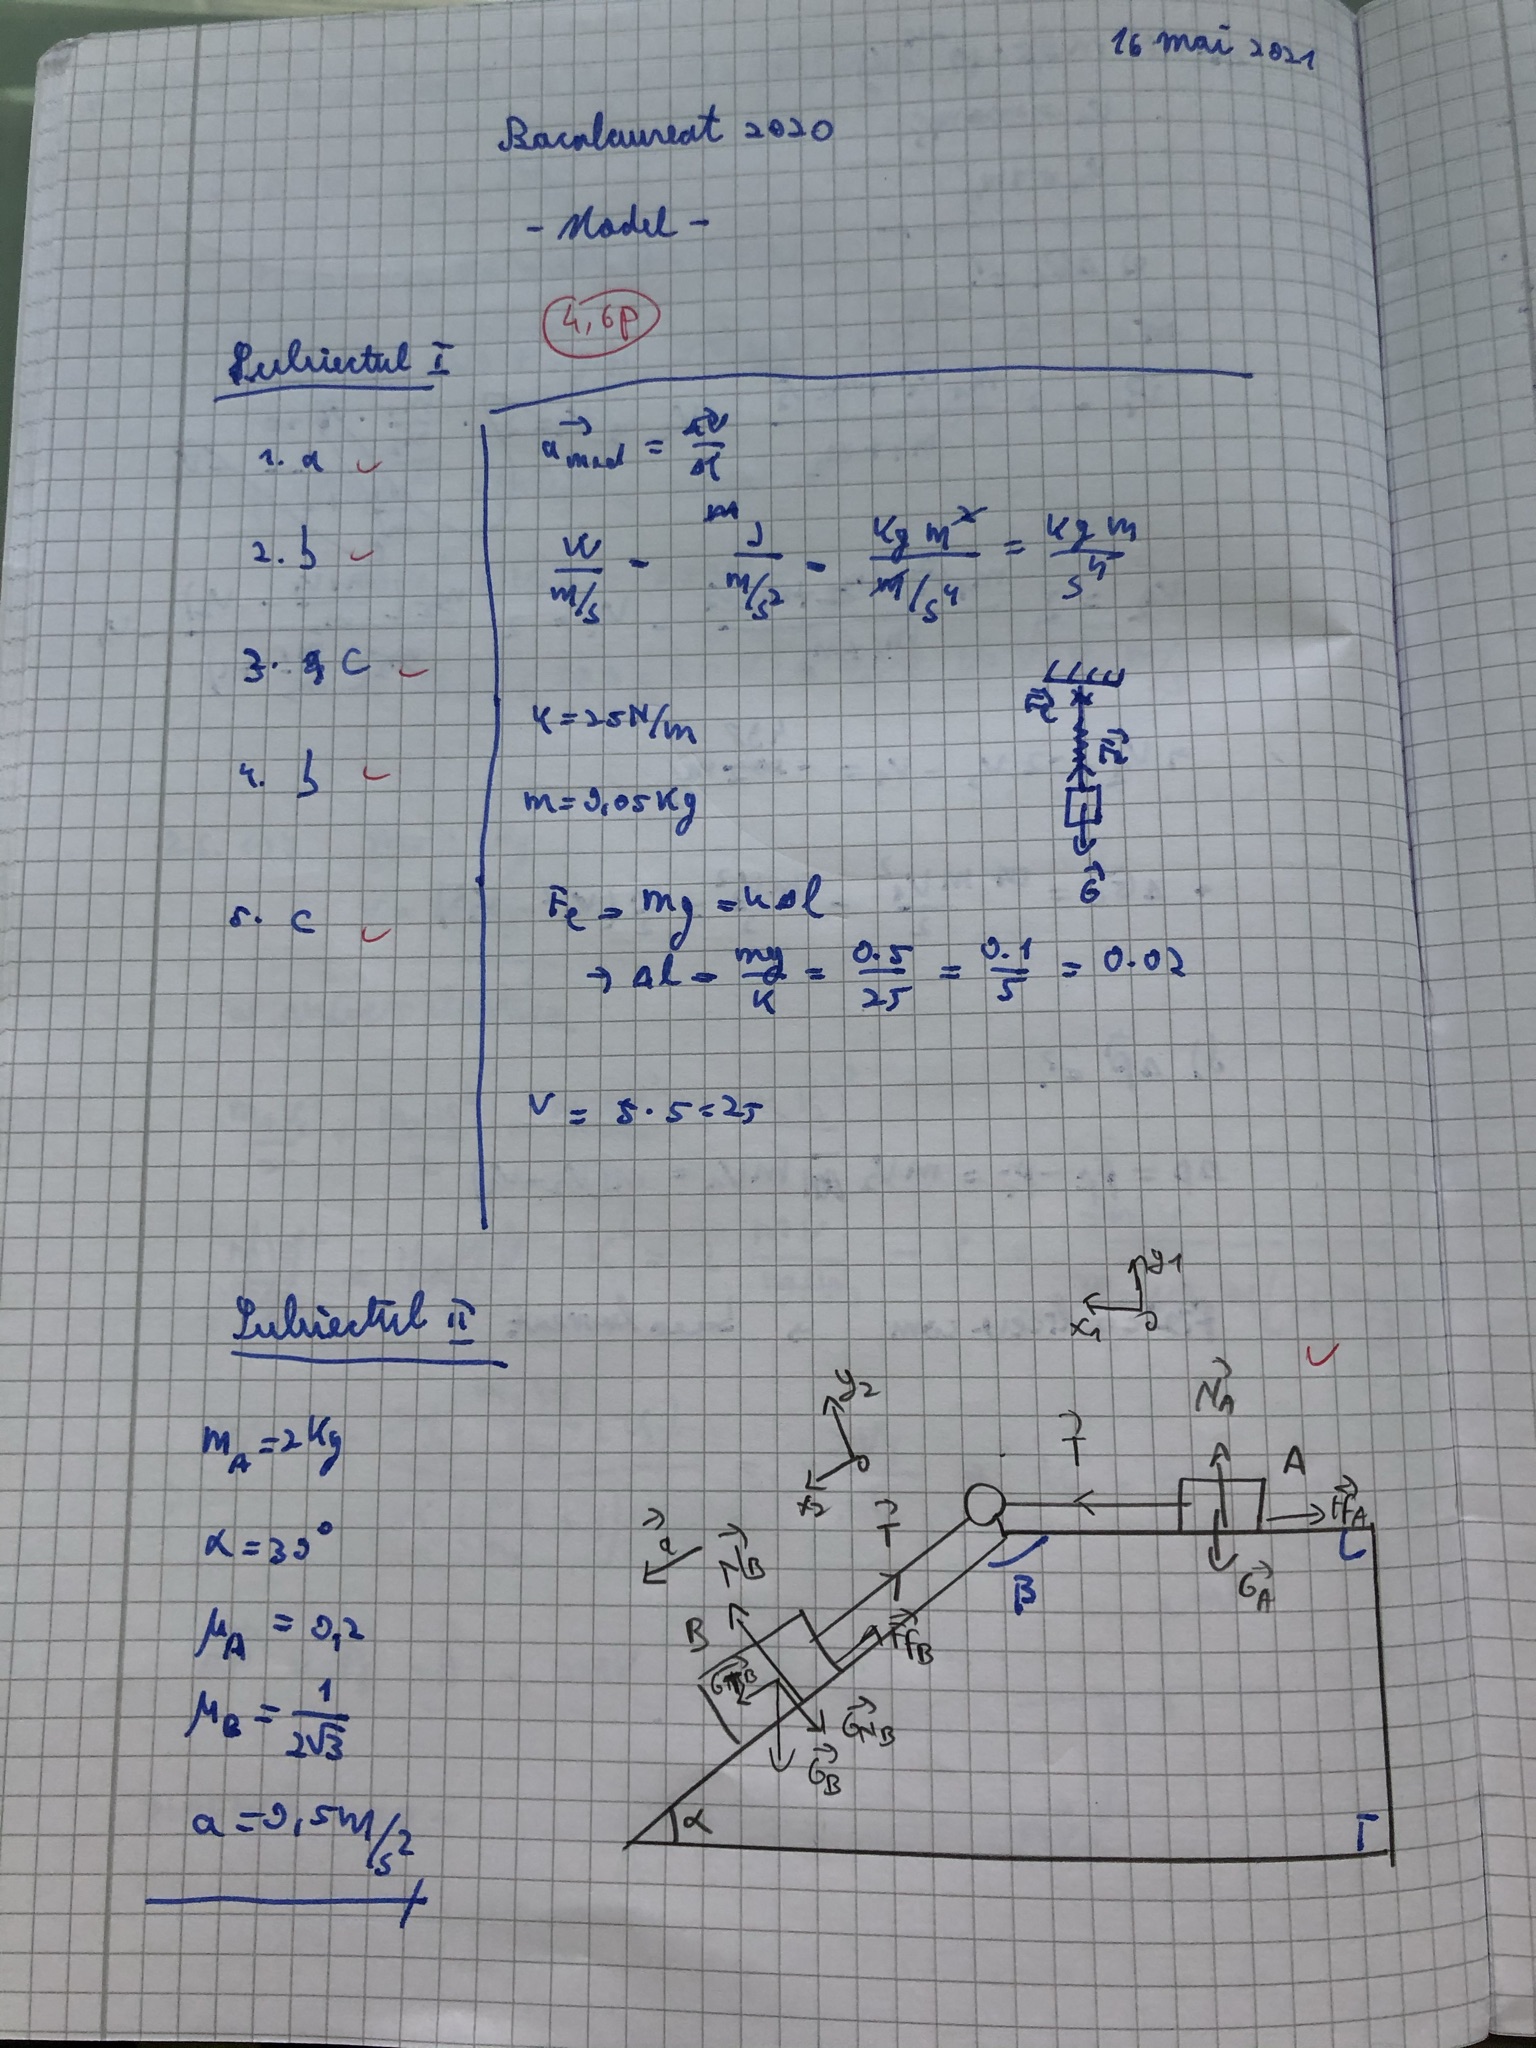 16 mai 2021
Bacalaureat 2020
- Model -
4,6p
Subiectul I
1. a
2. b
3. C
4. b
5. c
a⃗med = Δv⃗/Δt
W/(m/s) = J/(m/s²) = kg m²/(m/s⁴) = kg m/s⁴
K=25N/m
m=0,05Kg
F⃗e
F⃗e
G⃗
Fe = mg = kΔl
→ Δl = mg/K = 0.5/25 = 0.1/5 = 0.02
V = 5·5=25
Subiectul II
mA=2Kg
α=30°
μA = 0,2
μB = 1/(2√3)
a=0,5m/s²
y1
x1
O
y2
x2
O
N⃗A
T⃗
A
F⃗fA
G⃗A
C
T⃗
B
a⃗
N⃗B
B
F⃗fB
G⃗NB
G⃗B
α